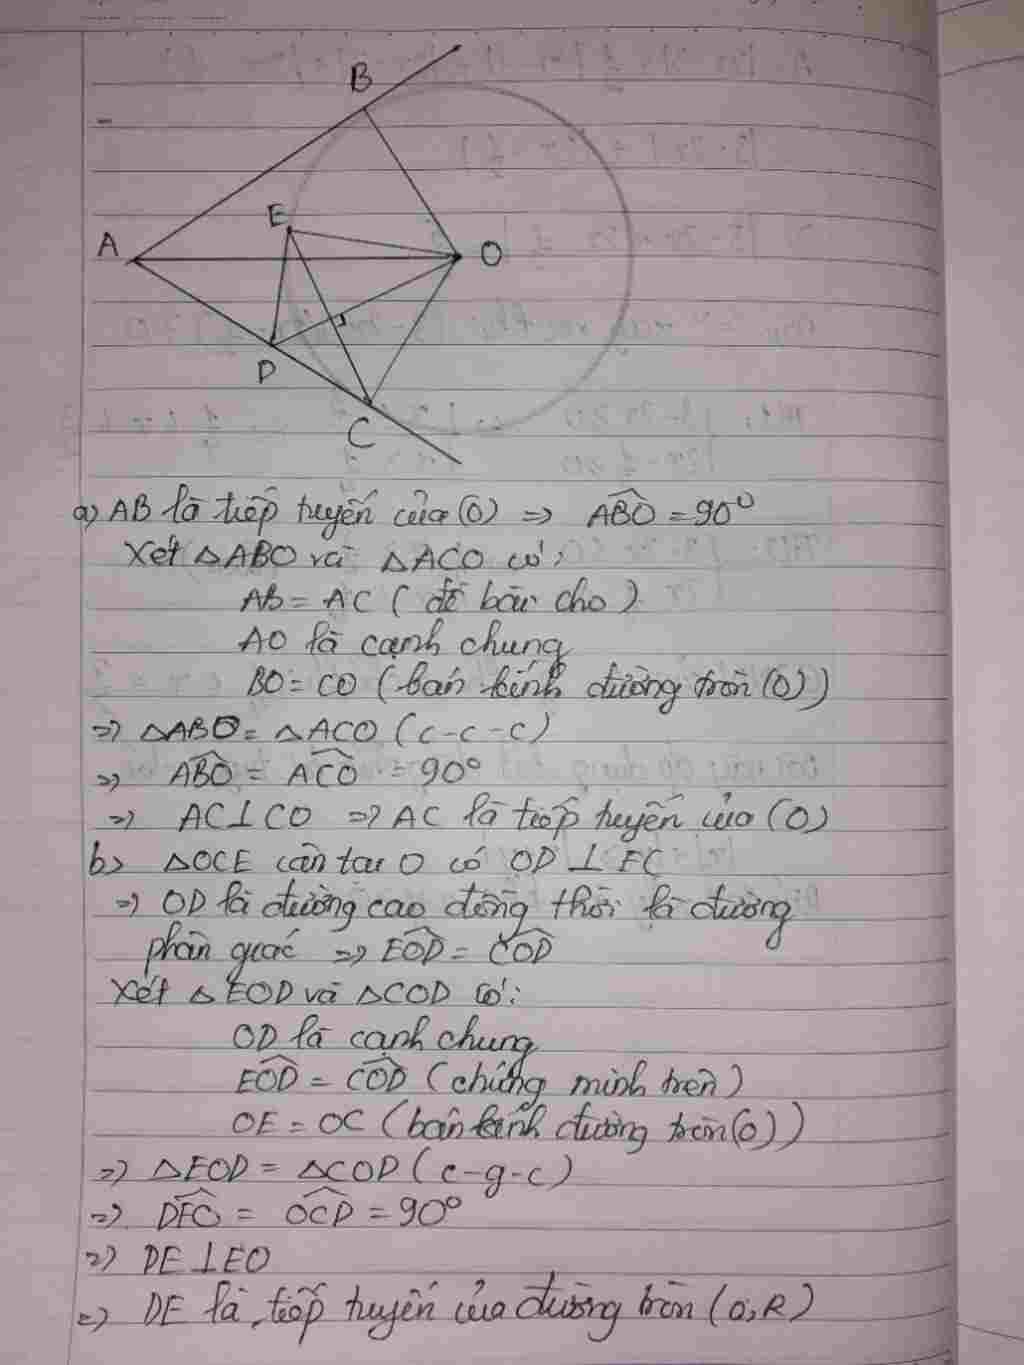 B
E
A
O
D
C
a) AB là tiếp tuyến của (O) => ABO = 90°
Xét △ABO và △ACO có:
AB = AC ( đề bài cho )
AO là cạnh chung
BO = CO ( bán kính đường tròn (O))
=> △ABO = △ACO ( c-c-c )
=> ABO = ACO = 90°
=> AC⊥CO => AC là tiếp tuyến của (O)
b) △OCE cân tại O có OD ⊥ EC
=> OD là đường cao đồng thời là đường
phân giác => EOD = COD
Xét △EOD và △COD có:
OD là cạnh chung
EOD = COD ( chứng minh trên )
OE = OC ( bán kính đường tròn (O))
=> △EOD = △COD ( c-g-c )
=> DEO = OCD = 90°
=> DE⊥EO
=> DE là tiếp tuyến của đường tròn (O,R)